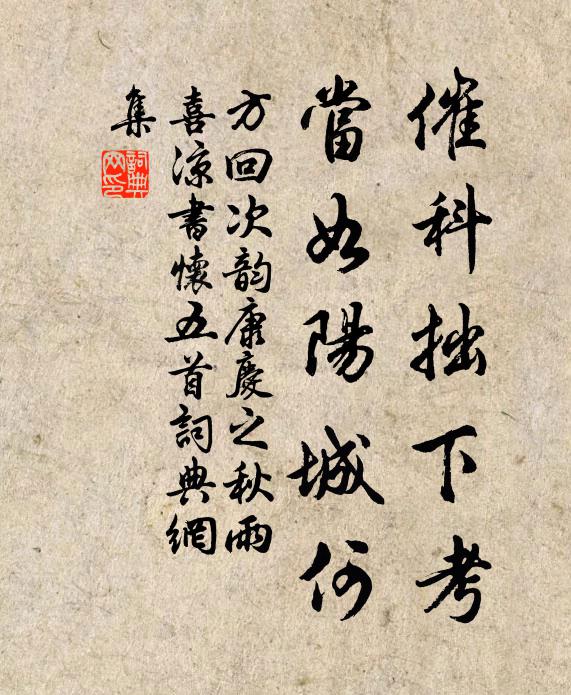 催科拙下考
當如陽城何
方回次韵康慶之秋雨
喜凉書懷五首詞典網
集
詞典網印